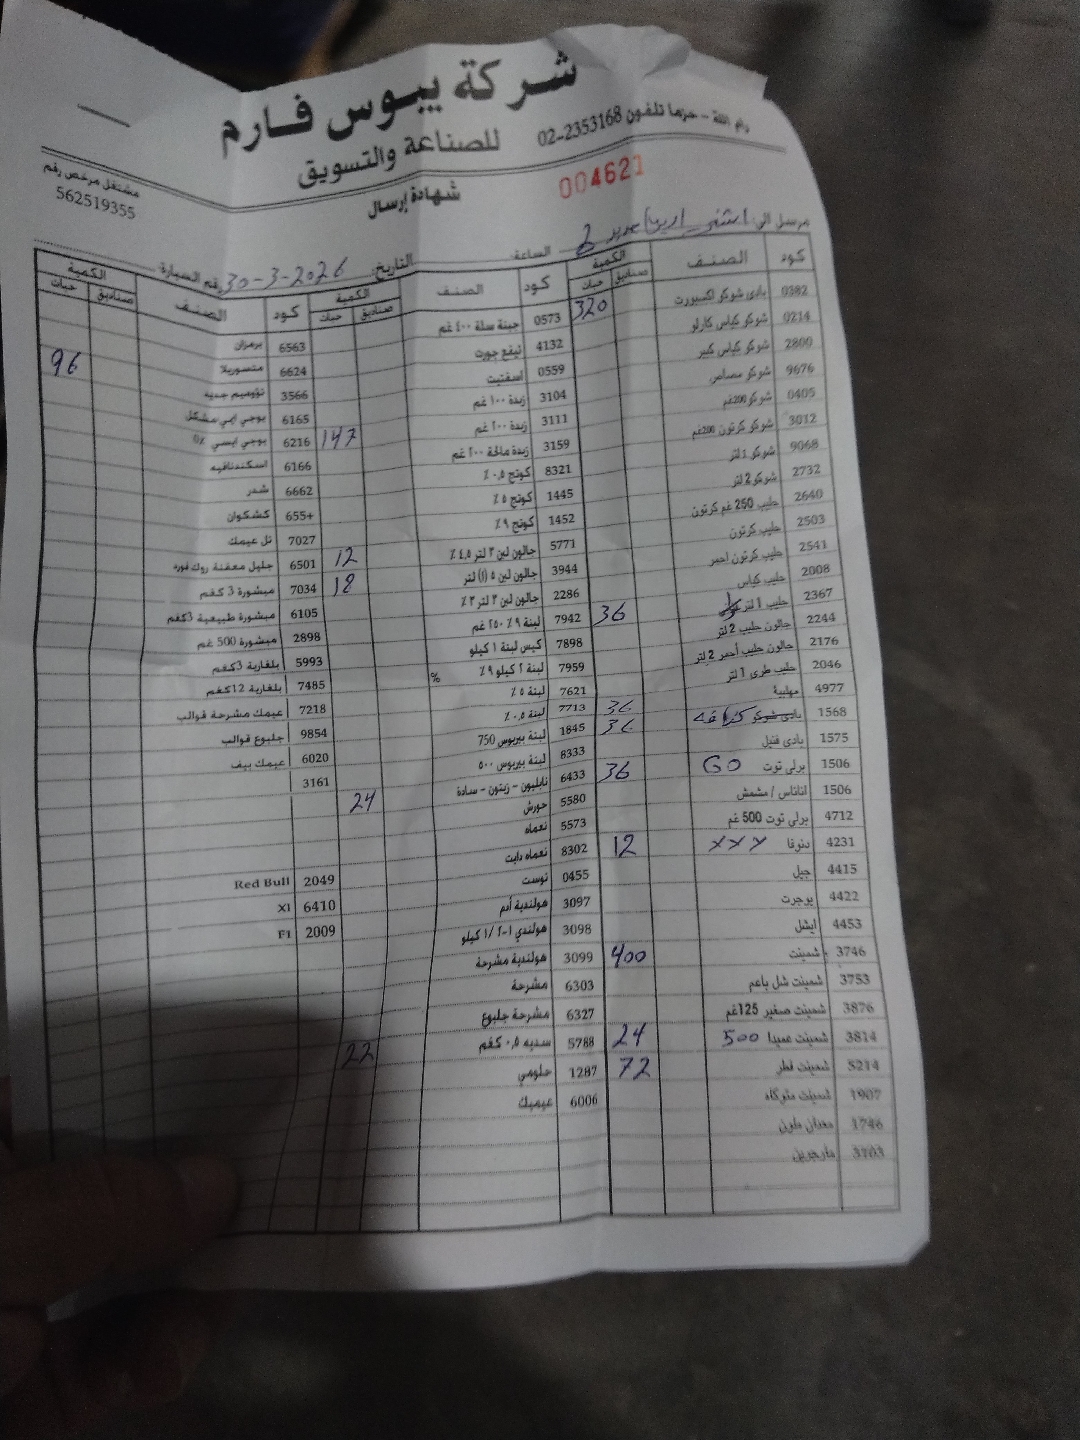 شركة يبوس فارم
للصناعة والتسويق
رام الله - حزما تلفون 02-2353168
مشتغل مرخص رقم
562519355
شهادة إرسال
004621
مرسل الى:
الساعة:
التاريخ: 30-3-2026
رقم السيارة
كود الصنف الكمية
صناديق حبات
0382 بادي شوكو اكسبورت 320
0214 شوكو كياس كارلو
2800 شوكو كياس كبير
9676 شوكو مصاص
0405 شوكو 200غم
3012 شوكو كرتون 200غم
9068 شوكو 1 لتر
2732 شوكو 2 لتر
2640 حليب 250 غم كرتون
2503 حليب كرتون
2541 حليب كرتون احمر
2008 حليب كياس
2367 حليب 1 لتر 36
2244 جالون حليب 2 لتر
2176 جالون حليب أحمر 2 لتر
2046 حليب طري 1 لتر
4977 مهلبية 36
1568 بادي شوكو 36
1575 بادي فنيل
1506 برلي توت GO 36
1506 اناناس / مشمش
4712 برلي توت 500 غم
4231 دنونا XXX 12
4415 جيل
4422 يوجرت
4453 ايشل
3746 شمينت 400
3753 شمينت شل باعم
3876 شمينت صغير 125غم
3814 شمينت 500 24
5214 شمينت 72
1907 شمينت
1746 معدان
3103 مارجرين
كود الصنف الكمية
صناديق حبات
0573 جبنة سلة ٤٠٠ غم
4132
0559 اسفتيت
3104 زبدة ١٠٠ غم
3111 زبدة ٢٠٠ غم
3159 زبدة مالحة ٢٠٠ غم 147
8321 كوتج ٠,٥٪
1445 كوتج ٥٪
1452 كوتج ٩٪
5771 جالون لبن ٣ لتر ٤,٥٪
3944 جالون لبن ٥ (أ) لتر 12
2286 جالون لبن ٣ لتر ٣٪ 18
7942 لبنة ٩٪ ٢٥٠ غم
7898 كيس لبنة ١ كيلو
7959 لبنة ٢ كيلو ٩٪ %
7621 لبنة ٥٪
7713 لبنة ٠,٥٪
1845 لبنة بيريوس 750
8333 لبنة بيريوس ٥٠٠
6433 نابليون - زيتون - سادة
5580 حورش 24
5573 نعماه
8302 نعماه دايت
0455 توست
3097 هولندية أدم
3098 هولندي ١-٢/١ كيلو
3099 هولندية مشرحة
6303 مشرحة
6327 مشرحة جلبوع
5788 سدية ٠,٥ كغم
1287 حلومي 22
6006 عيميك
كود الصنف الكمية
صناديق حبات
6563 برمزان
6624 متسوريلا 96
3566
6165 يوجي ايسي مشكل
6216 يوجي ايسي ٪0
6166 اسكندنافيه
6662 شدر
655+ كشكوان
7027 تل عيمك
6501 جليل معفنة روك فورد
7034 مبشورة 3 كغم
6105 مبشورة طبيعية 3كغم
2898 مبشورة 500 غم
5993 بلغارية 3كغم
7485 بلغارية 12كغم
7218 عيمك مشرحة قوالب
9854 جلبوع قوالب
6020 عيمك بيف
3161
2049 Red Bull
6410 Xl
2009 F1